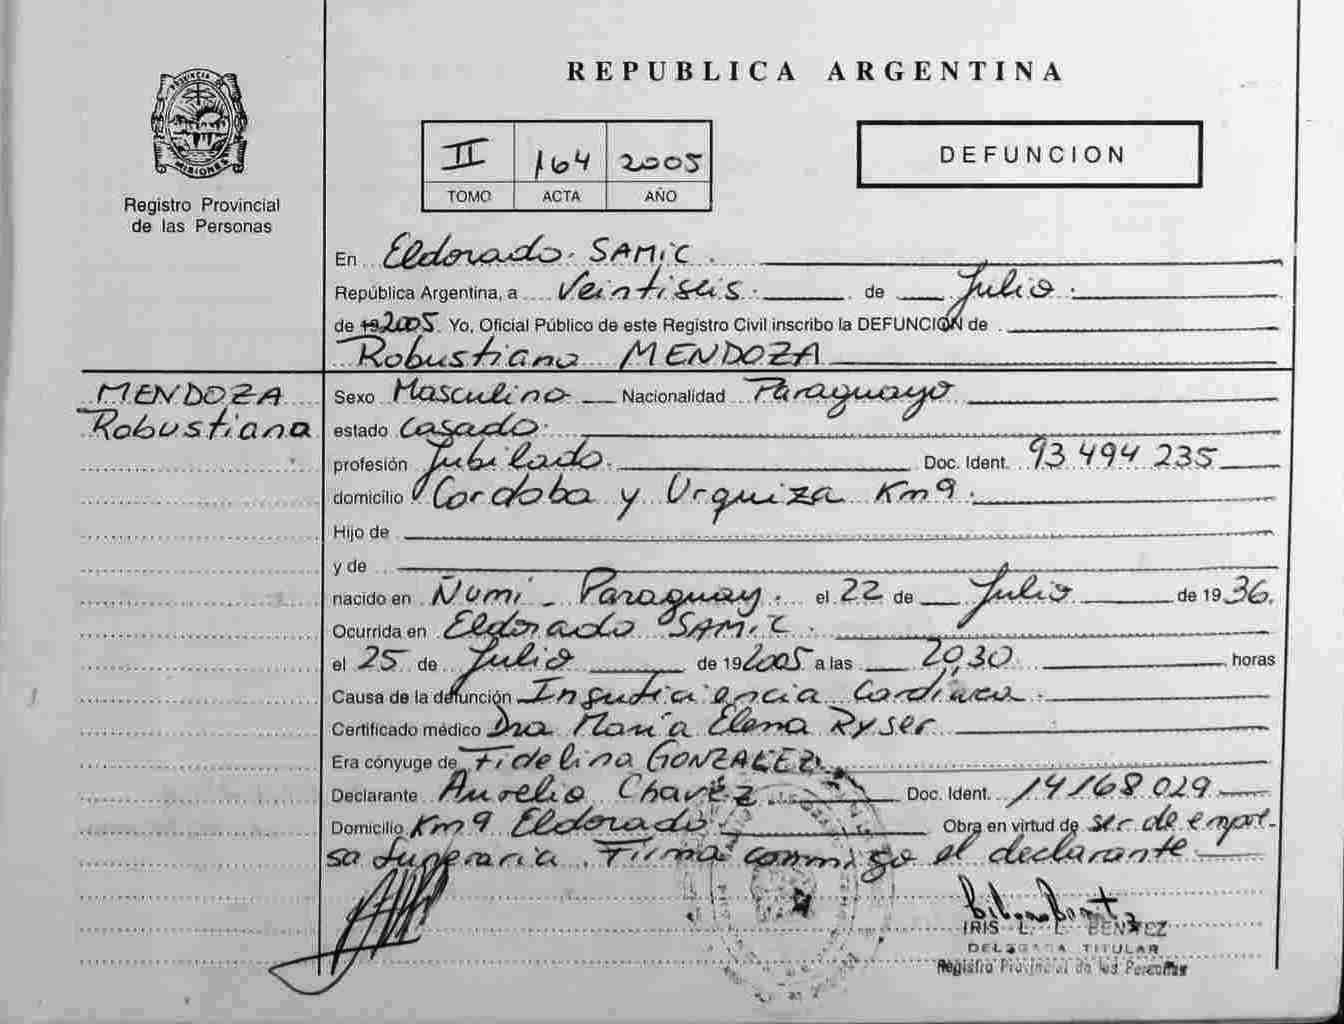 PROVINCIA DE
MISIONES
Registro Provincial
de las Personas
REPUBLICA ARGENTINA
II 164 2005
TOMO ACTA AÑO
DEFUNCION
En Eldorado. SAMIC.
República Argentina, a Veintiseis. de Julio.
de 192005. Yo, Oficial Público de este Registro Civil inscribo la DEFUNCION de
Robustiano MENDOZA
MENDOZA
Robustiano
Sexo Masculino Nacionalidad Paraguayo
estado Casado.
profesión Jubilado. Doc. Ident. 93 494 235
domicilio Cordoba y Urquiza Km 9.
Hijo de
y de
nacido en Ñumi - Paraguay. el 22 de Julio de 1936.
Ocurrida en Eldorado SAMIC.
el 25 de Julio de 192005 a las 20,30 horas
Causa de la defunción Insuficiencia Cardíaca.
Certificado médico Dra María Elena Ryser
Era cónyuge de Fidelina GONZALEZ.
Declarante Aurelio Chavez Doc. Ident. 14168 029
Domicilio Km 9 Eldorado Obra en virtud de ser de empre-
sa funeraria. Firma conmigo el declarante
IRIS L. L. BENITEZ
DELEGADA TITULAR
Registro Provincial de las Personas